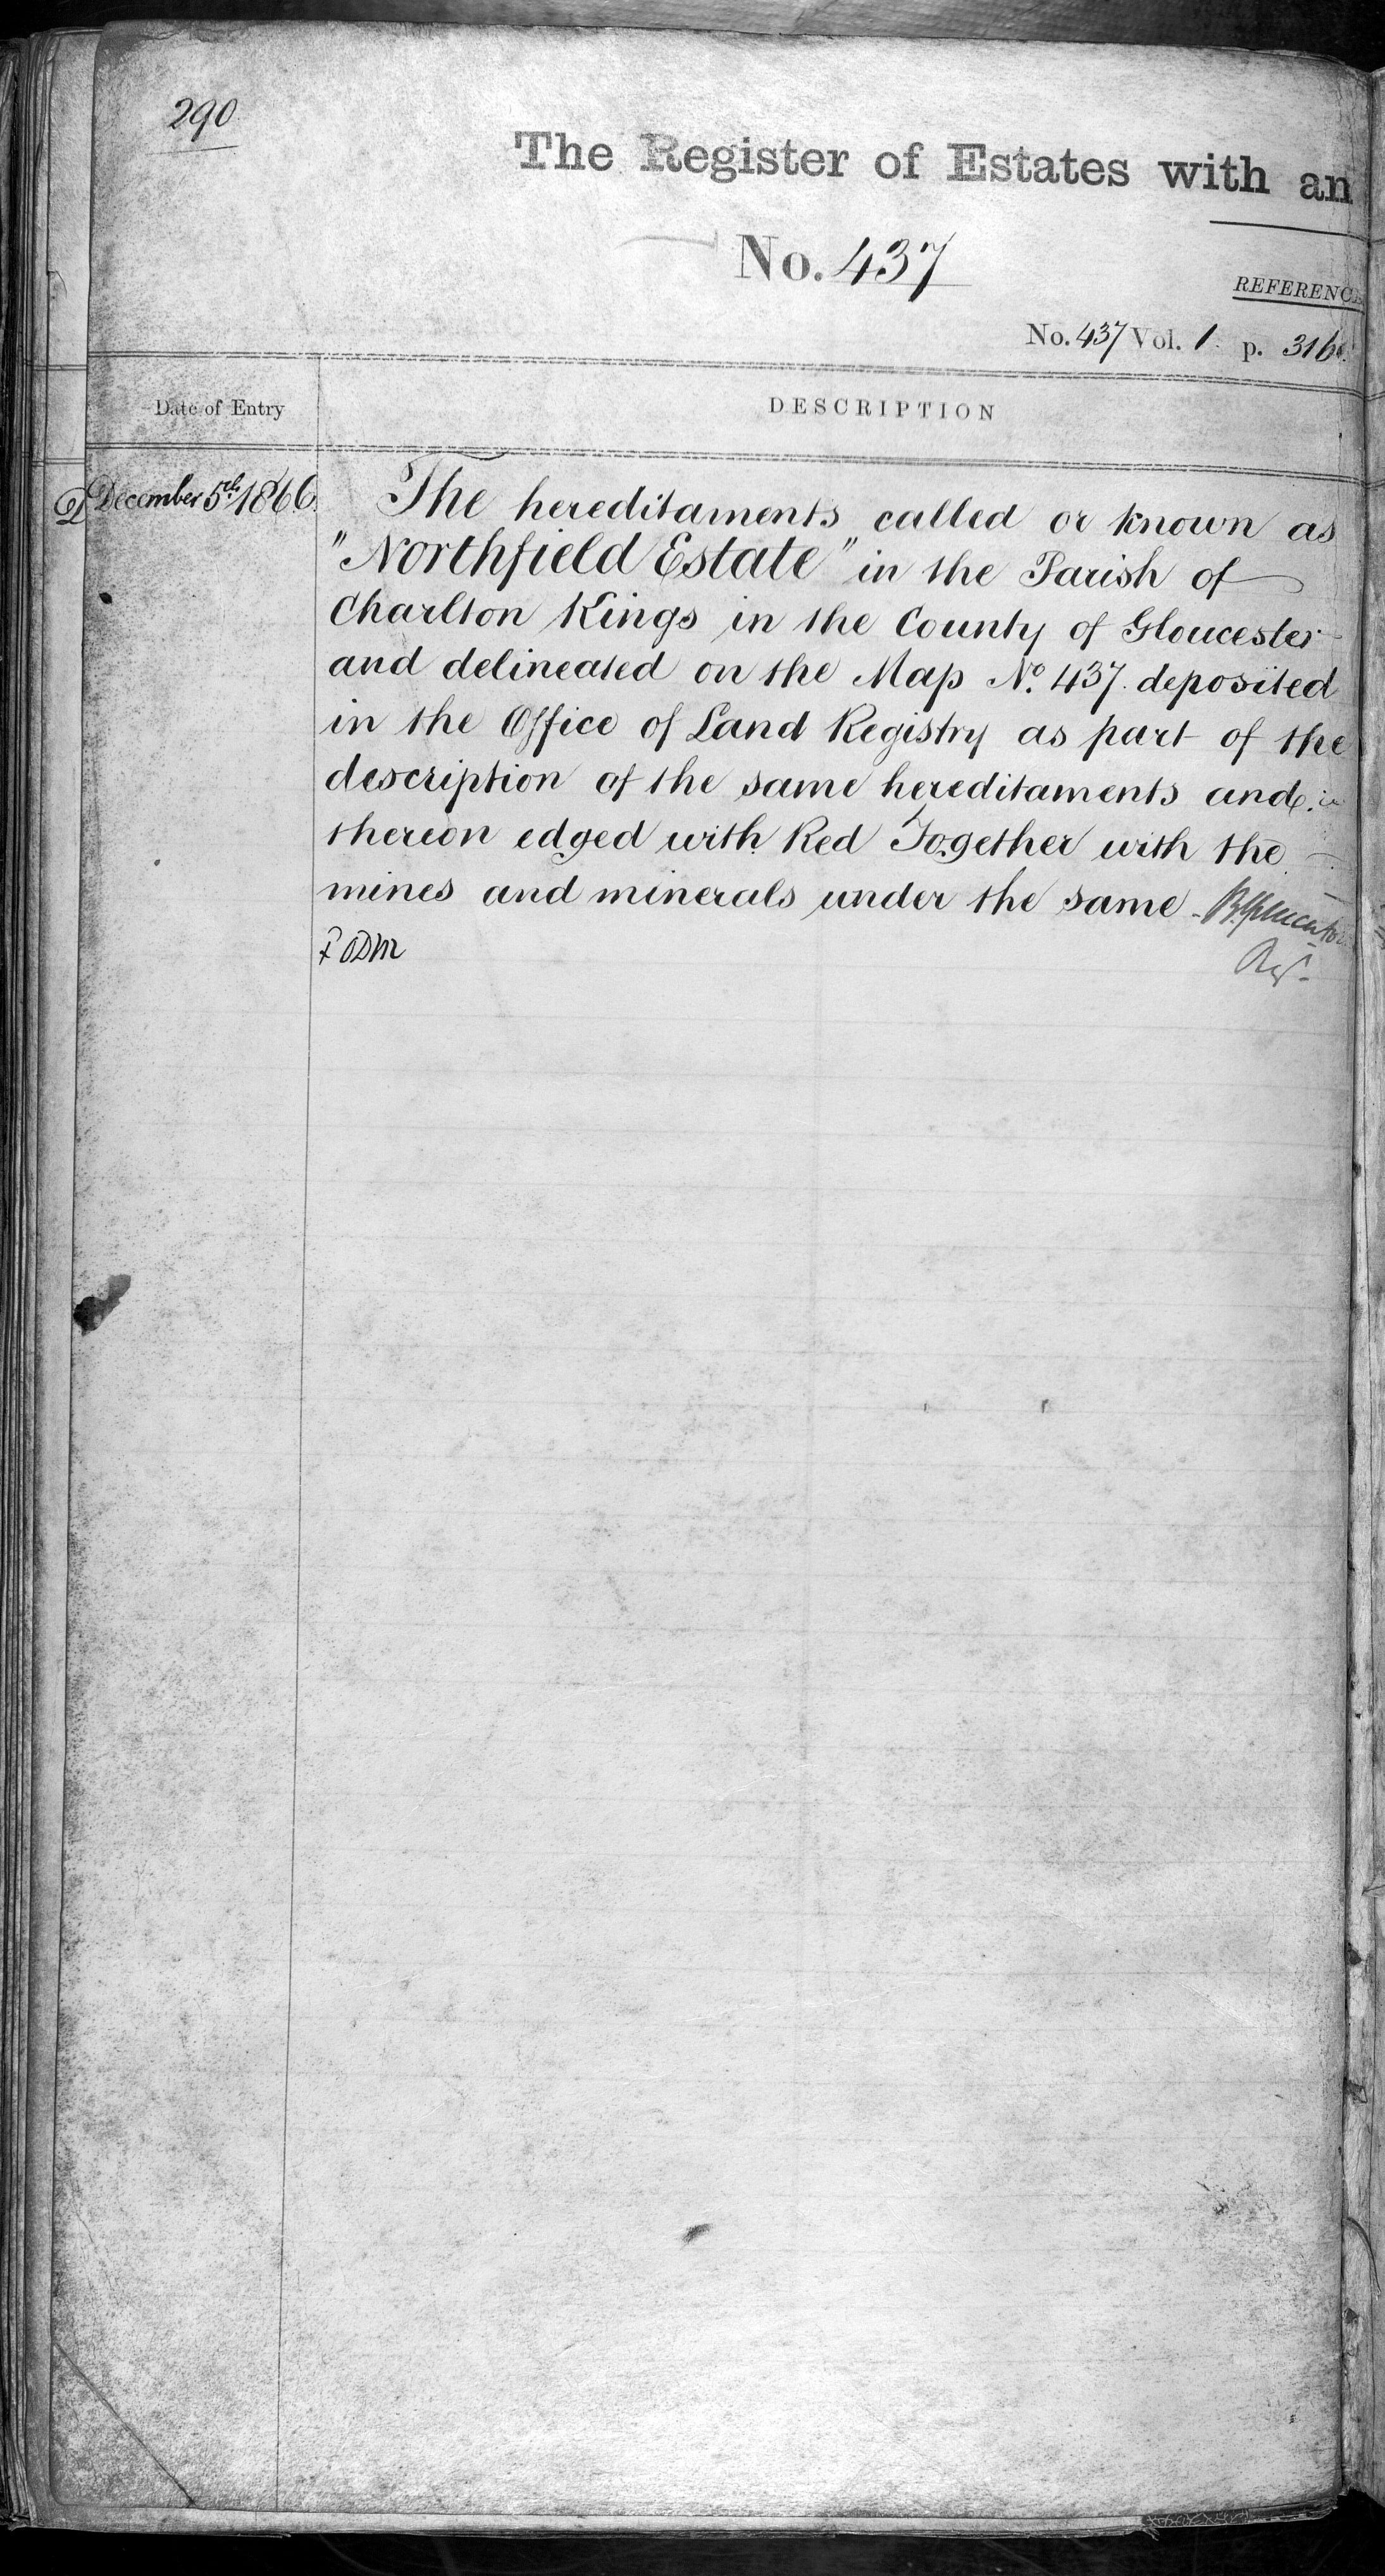 290
The Register of Estates with an
No. 437
REFERENCE
No. 437 Vol. 1. p. 316
Date of Entry
DESCRIPTION
December 5th 1866.
The hereditaments called or known as
"Northfield Estate" in the Parish of
Charlton Kings in the County of Gloucester
and delineated on the Map No. 437. deposited
in the Office of Land Registry as part of the
description of the same hereditaments and
thereon edged with Red Together with the
mines and minerals under the same
Regr.